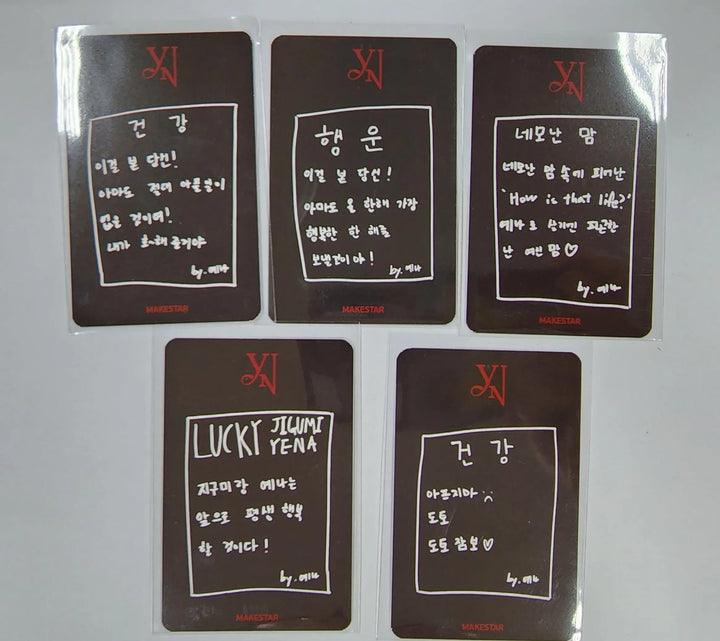 YN
건 강
이걸 본 당신!
아마도 절대 아플일이
없을 것이여!
내가 호해줄거야
by. 예나
MAKESTAR
YN
행 운
이걸 본 당신!
아마도 올 한해 가장
행복한 한 해를
보낼것이야!
by. 예나
MAKESTAR
YN
네모난 맘
네모난 맘 속에 피어난
'How is that life?'
예나로
난 여린 맘♡
by. 예나
MAKESTAR
YN
LUCKY JIGUMI
YENA
지구미랑 예나는
앞으로 평생 행복
할 것이다!
by. 예나
MAKESTAR
YN
건 강
아프지마
도토
도토 잠보♡
by. 예나
MAKESTAR